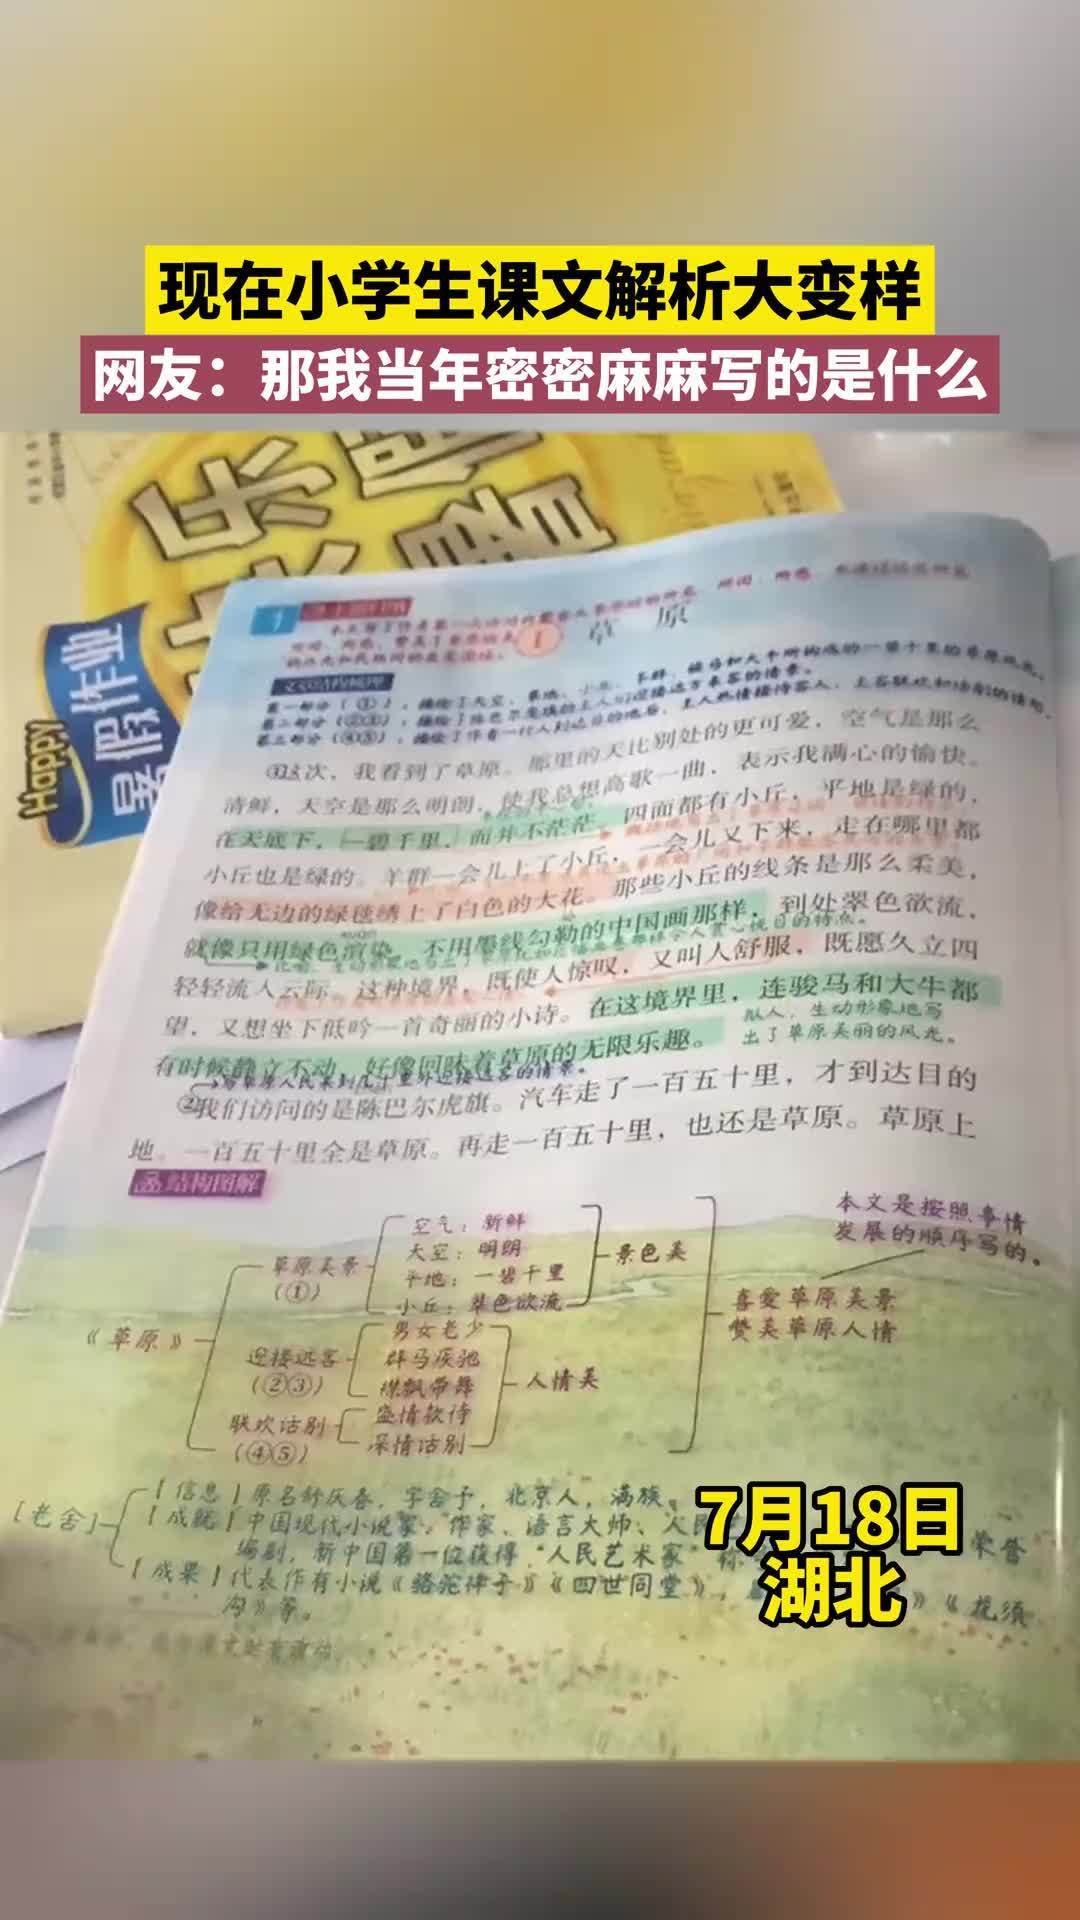 现在小学生课文解析大变样
网友：那我当年密密麻麻写的是什么
快乐暑假
Happy
暑假作业
1
1 草 原
①这次，我看到了草原。那里的天比别处的更可爱，空气是那么
清鲜，天空是那么明朗，使我总想高歌一曲，表示我满心的愉快。
在天底下，一碧千里，而并不茫茫。四面都有小丘，平地是绿的，
小丘也是绿的。羊群一会儿上了小丘，一会儿又下来，走在哪里都
像给无边的绿毯绣上了白色的大花。那些小丘的线条是那么柔美，
就像只用绿色渲染，不用墨线勾勒的中国画那样，到处翠色欲流，
轻轻流入云际。这种境界，既使人惊叹，又叫人舒服，既愿久立四
望，又想坐下低吟一首奇丽的小诗。在这境界里，连骏马和大牛都
拟人，生动形象地写
出了草原美丽的风光。
有时候静立不动，好像回味着草原的无限乐趣。
②我们访问的是陈巴尔虎旗。汽车走了一百五十里，才到达目的
地。一百五十里全是草原。再走一百五十里，也还是草原。草原上
结构图解
《草原》
草原美景
（①）
空气：新鲜
天空：明朗
平地：一碧千里
小丘：翠色欲流
景色美
迎接远客
（②③）
男女老少
群马疾驰
襟飘带舞
联欢话别
（④⑤）
盛情款待
深情话别
人情美
喜爱草原美景
赞美草原人情
本文是按照事情
发展的顺序写的。
[老舍]
[信息]原名舒庆春，字舍予，北京人，满族。
[成就]中国现代小说家、作家、语言大师、人民艺
编剧，新中国第一位获得“人民艺术家”称 荣誉
[成果]代表作有小说《骆驼祥子》《四世同堂》， 》《龙须
沟》等。
7月18日
湖北